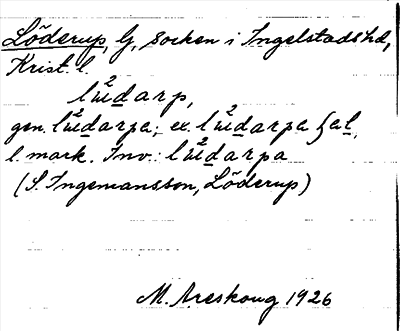 Löderup, G, socken i Ingelstads hd,
Krist. l.
lẅ²darp,
gen. lẅ²darpa; ex. lẅ²darpa
l. mark. Inv.: lẅ²darpa
(S. Ingemansson, Löderup)
M. Areskoug 1926